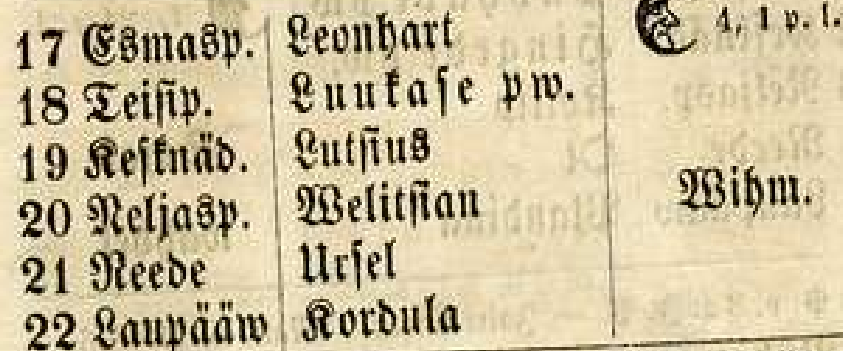 17 Esmasp. Leonhart 4, 1 p. l.
18 Teisip. Luukase pw.
19 Kesknäd. Lutsius
20 Neljasp. Welitsian Wihm.
21 Reede Ursel
22 Laupääw Kordula